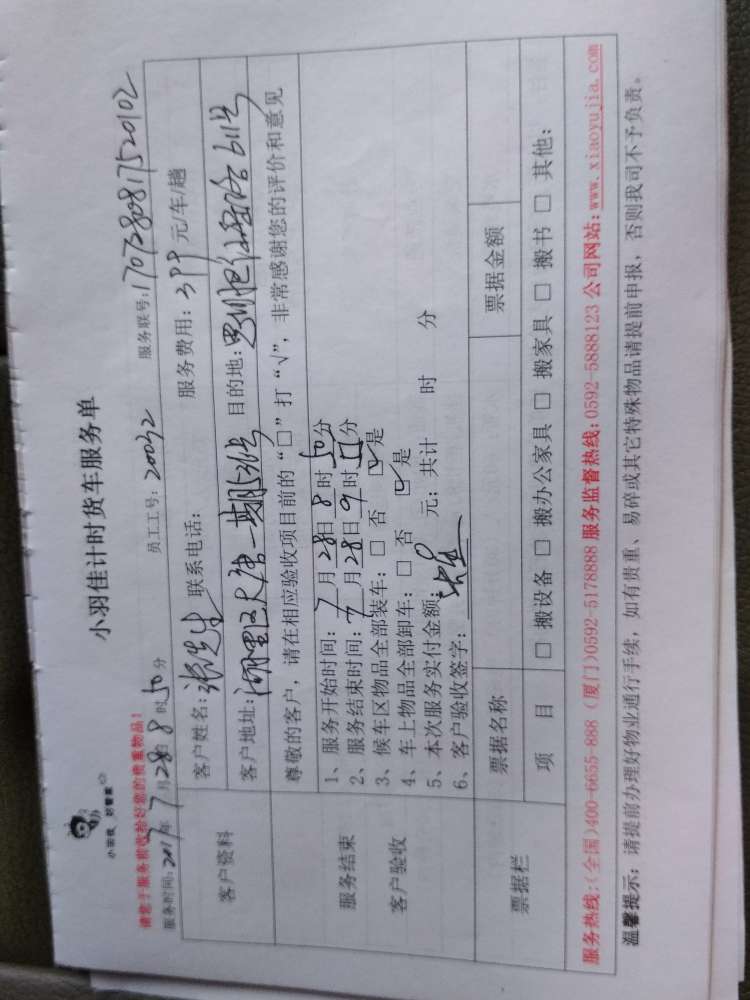 小羽佳 好管家
小羽佳计时货车服务单
请您于服务前收拾好您的贵重物品!
服务时间: 2017年7月28日8时50分 员工工号: 20032 服务联号: 1707380817520102
客户资料
客户姓名: 张先生 联系电话: 服务费用: 399 元/车/趟
客户地址: 湖里区 一期 目的地: 611号
尊敬的客户, 请在相应验收项目前的“□”打“√”, 非常感谢您的评价和意见
服务结束
客户验收
1、服务开始时间: 7月28日8时50分
2、服务结束时间: 7月28日9时 分
3、候车区物品全部装车: □ 否 ☑ 是
4、车上物品全部卸车: □ 否 ☑ 是
5、本次服务实付金额: 元; 共计 时 分
6、客户验收签字:
票据栏
票据名称 票据金额
项 目 □ 搬设备 □ 搬办公家具 □ 搬家具 □ 搬书 □ 其他:
服务热线:(全国)400-6655-888 (厦门)0592-5178888 服务监督热线:0592-5888123 公司网站:www.xiaoyujia.com
温馨提示: 请提前办理好物业通行手续, 如有贵重、易碎或其它特殊物品请提前申报, 否则我司不予负责。